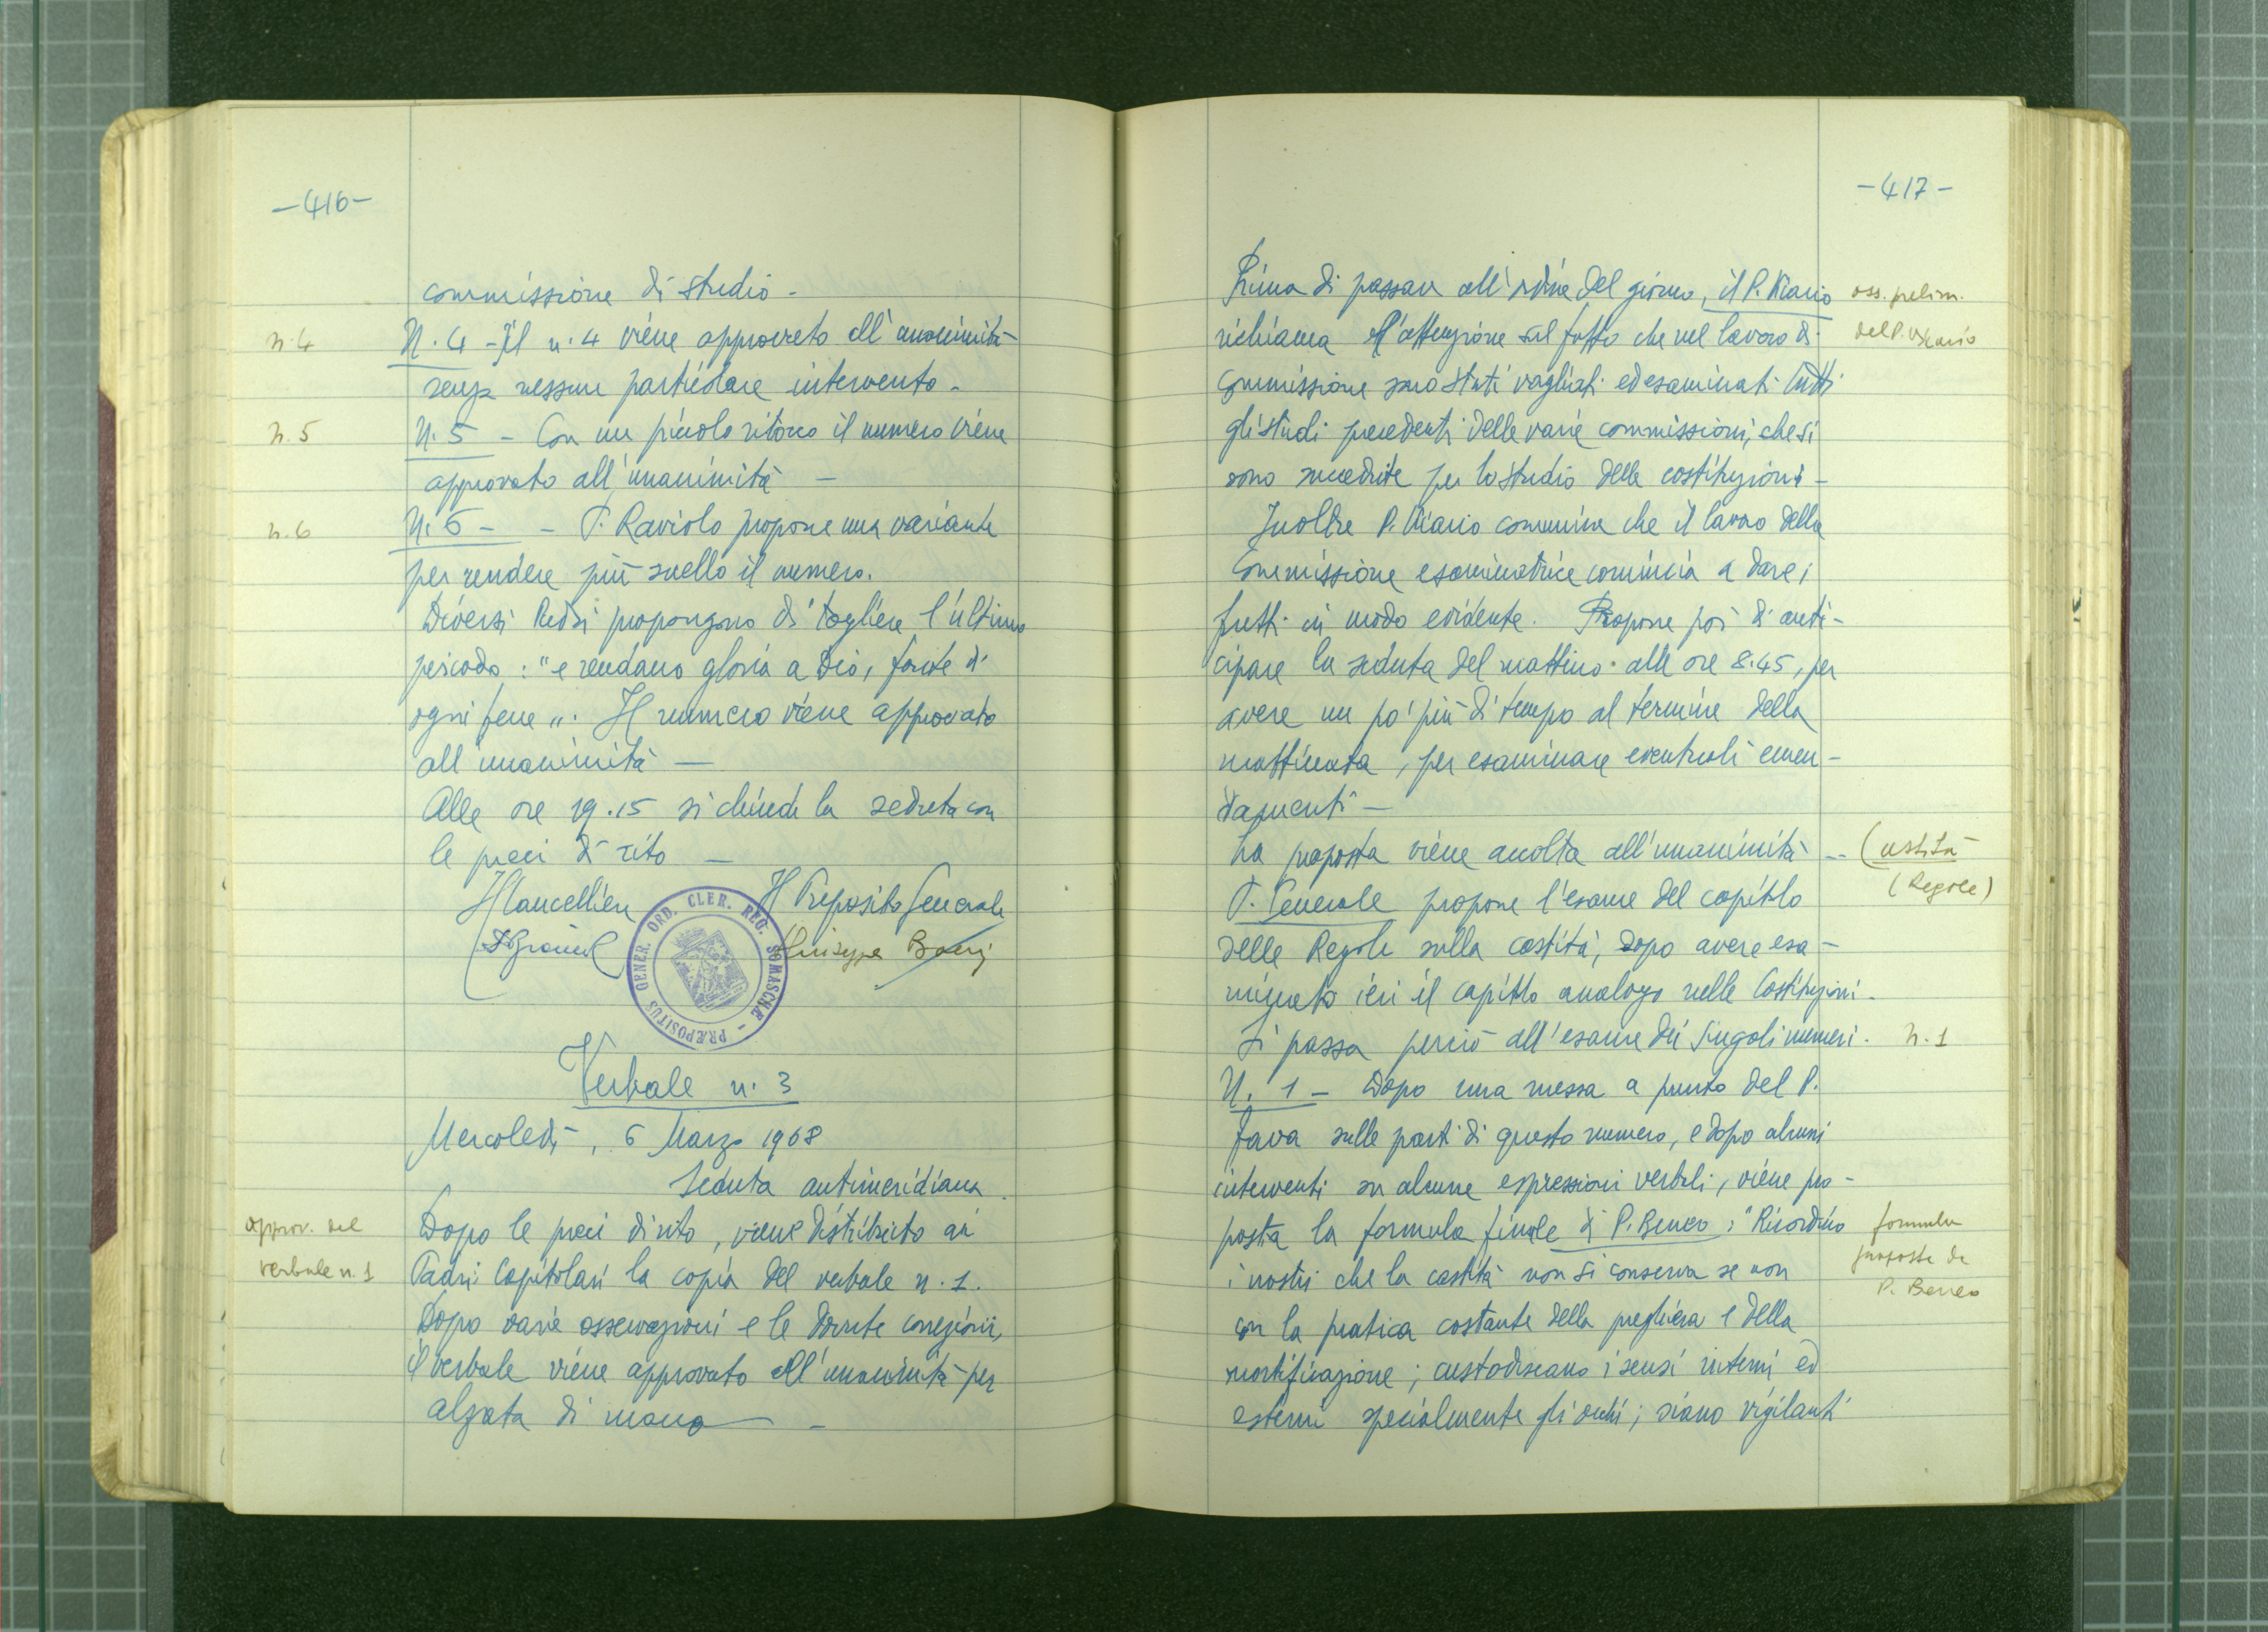 -416-
commissione di studio -
n. 4
N. 4 - Il n. 4 viene approvato all'unanimità
senza nessun particolare intervento -
n. 5
N. 5 - Con un piccolo ritocco il numero viene
approvato all'unanimità -
n. 6
N. 6 - - P. Raviolo propone una variante
per rendere più snello il numero.
Diversi Padri propongono di togliere l'ultimo
periodo: "e rendano gloria a Dio, fonte di
ogni bene". Il numero viene approvato
all'unanimità -
Alle ore 19.15 si chiude la seduta con
le preci di rito -
Il Cancelliere Il Preposito Generale
Giuseppe
PRÆPOSITUS GENER. ORD. CLER. REG. SOMASCHÆ -
Verbale n. 3
Mercoledì, 6 Marzo 1968
Seduta antimeridiana.
approv. del
verbale n. 1
Dopo le preci di rito, viene distribuito ai
Padri Capitolari la copia del verbale n. 1.
Dopo varie osservazioni e le dovute correzioni,
il verbale viene approvato all'unanimità per
alzata di mano -
-417-
Prima di passare all'ordine del giorno, il P. Vicario
oss. prelim.
del P. Vicario
richiama l'attenzione sul fatto che nel lavoro di
commissione sono stati vagliati ed esaminati tutti
gli studi precedenti delle varie commissioni, che si
sono succedute per lo studio delle costituzioni -
Inoltre P. Vicario comunica che il lavoro della
Commissione esaminatrice comincia a dare i
frutti in modo evidente. Propone poi di anti-
cipare la seduta del mattino alle ore 8.45, per
avere un po' più di tempo al termine della
mattinata, per esaminare eventuali emen-
damenti -
La proposta viene accolta all'unanimità --
Castità
(Regole)
P. Generale propone l'esame del capitolo
delle Regole sulla castità, dopo avere esa-
minato ieri il capitolo analogo nelle Costituzioni.
Si passa perciò all'esame dei singoli numeri.
n. 1
N. 1 - Dopo una messa a punto del P.
Fava sulle parti di questo numero, e dopo alcuni
interventi su alcune espressioni verbali, viene pro-
posta la formula finale di P. Beneo: "Ricordino
formula
proposta da
P. Beneo
i nostri che la castità non si conserva se non
con la pratica costante della preghiera e della
mortificazione; custodiscano i sensi interni ed
esterni specialmente gli occhi; siano vigilanti